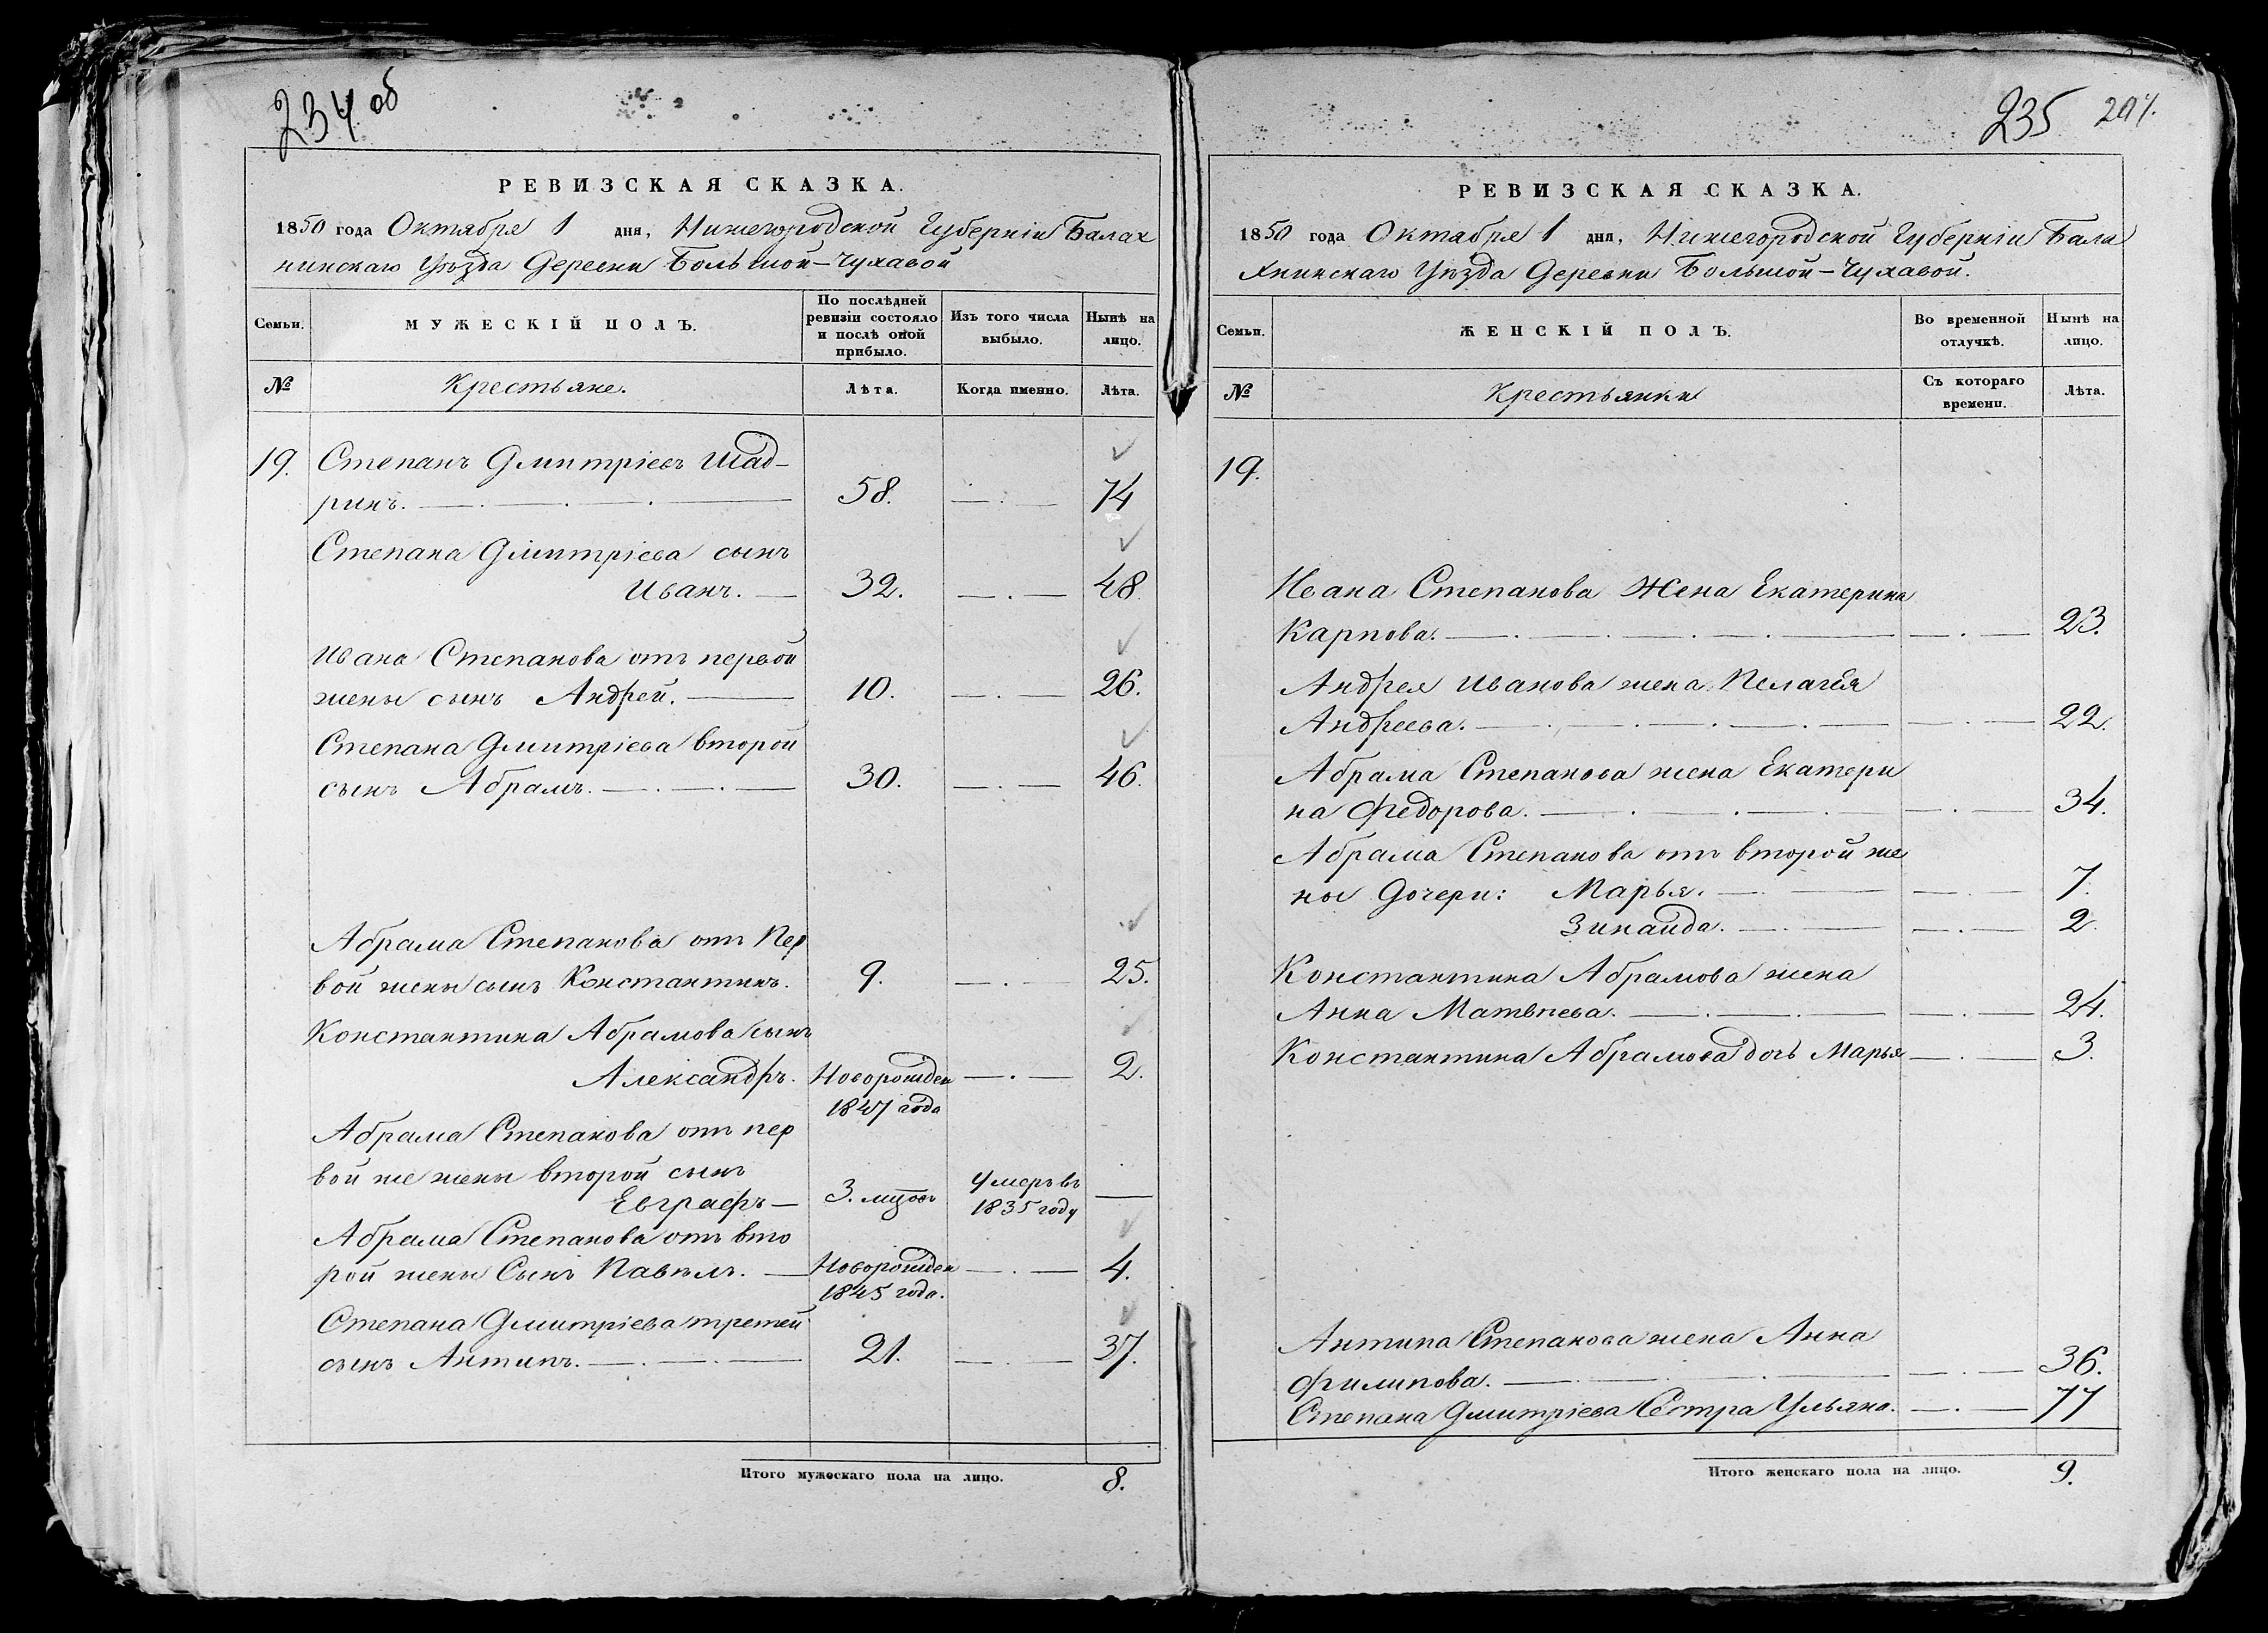 234 об
РЕВИЗСКАЯ СКАЗКА.
1850 года Октября 1 дня, Нижегородской Губерніи Балах
нинскаго Уѣзда Деревни Большой-Чулавой
Семьи.
МУЖЕСКІЙ ПОЛЪ.
По послѣдней
ревизіи состояло
и послѣ оной
прибыло.
Изъ того числа
выбыло.
Нынѣ на
лицо.
№ Крестьяне. Лѣта. Когда именно. Лѣта.
19. Степанъ Дмитріевъ Шад-
ринъ. 58. 74
Степана Дмитріева сынъ
Иванъ. 32. 48.
Ивана Степанова отъ первой
жены сынъ Андрей. 10. 26.
Степана Дмитріева второй
сынъ Абрамъ. 30. 46.
Абрама Степанова отъ Пер
вой жены сынъ Константинъ. 9. 25.
Константина Абрамова сынъ
Александръ. Новорожден 2.
1847 года
Абрама Степанова отъ пер
вой же жены второй сынъ
Евграфъ 3. мцовъ Умеръ въ
1835 году
Абрама Степанова отъ вто
рой жены Сынъ Павелъ. Новорожден 4.
1845 года.
Степана Дмитріева третей
сынъ Антипъ. 21. 37.
Итого мужескаго пола на лицо. 8.
235
РЕВИЗСКАЯ СКАЗКА.
1850 года Октября 1 дня, Нижегородской Губерніи Бала
хнинскаго Уѣзда Деревни Большой-Чулавой.
Семьи.
ЖЕНСКІЙ ПОЛЪ.
Во временной
отлучкѣ.
Нынѣ на
лицо.
№ Крестьянки
Съ котораго
времени.
Лѣта.
19.
Ивана Степанова Жена Екатерина
Карпова. 23.
Андрея Иванова жена Пелагѣя
Андреева. 22.
Абрама Степанова жена Екатери
на Федорова. 34.
Абрама Степанова отъ второй же
ны Дочери: Марья. 7.
Зинаида. 2.
Константина Абрамова жена
Анна Матвѣева. 24.
Константина Абрамова дочь Марья 3.
Антипа Степанова жена Анна
Филипова. 36.
Степана Дмитріева Сестра Ульяна. 77
Итого женскаго пола на лицо. 9.